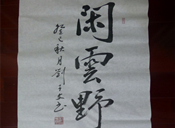 閑雲野
癸巳秋月劉